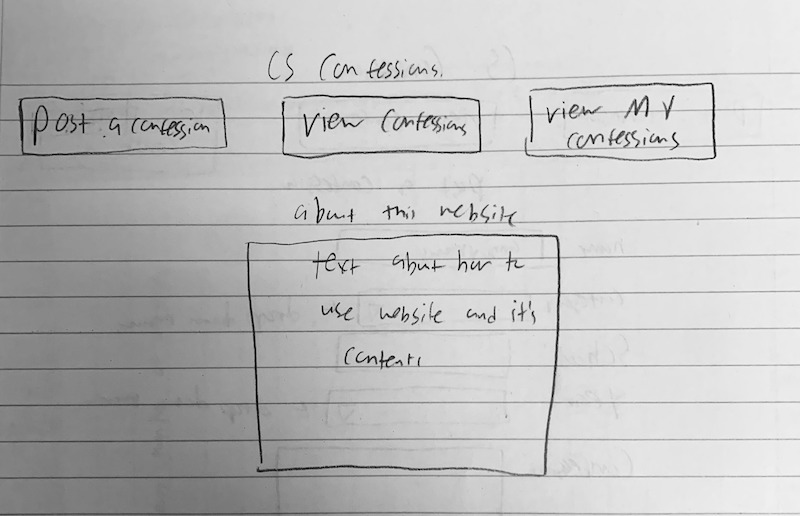 CS Confessions.
Post a confession
view confessions
view MY
confessions
about this website
text about how to
use website and it's
contents